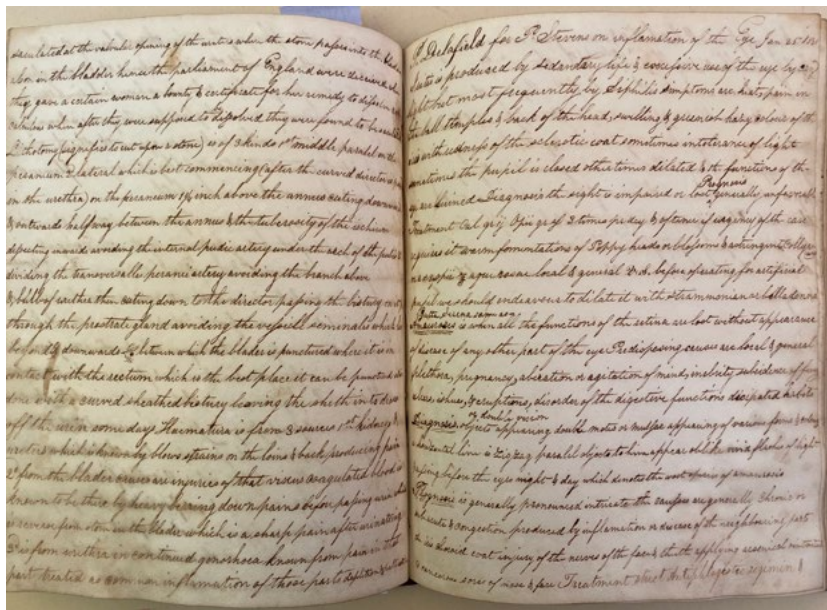 at the valvular opening of the ureters when the stone passes into the
in the bladder hence the parliament of England were deceived when
they gave a certain woman a bounty & certificate for her remedy to dissolve
calculous when after they were supposed to dissolved they were found to be
Lithotomy (signifies to cut upon a stone) is of 3 kinds 1st middle paralel on the
pereanium 2 lateral which is best commencing (after the curved director is
in the urethra) on the pereanum 1½ inch above the annus cuting downward
& outwards halfway between the annus & the tuberosity of the ischium
disecting inwards avoiding the internal pudic artery under the arch of the pubis &
dividing the transversalis peranei artery avoiding the branch above
& bulb of urethra then cuting down to the director passing the bistury on it
through the prostrate gland avoiding the vesiculi seminalis which
beyond & downwards between which the blader is punctured where it is in
contact with the rectum which is the best place it can be punctured
done with a curved sheathed bistury leaving the sheth in to draw
off the urin some days Haematura is from 3 sources 1st kidneys &
ureters which is known by blows strains on the loins & back producing pain
2d from the blader causes are injuries of that viscus coagulated blood is
known to be there by heavy bearing down pains before passing urin which
is reverse from stone in the blader which is a sharp pain after urinating
3d is from urethra in continued gonorhoea known from pain in that
part treated as common inflamation of those parts depletion &
Delafield for Dr Stevens on inflamation of the Eye Jan 25th
is produced by sedentary life & excessive use of the eye by
light but most frequently by Siphilis simptoms are heat, pain in
the ball temples & back of the head, swelling & greenish hazy colour of the
with redness of the sclerotic coat sometimes intolerance of light
sometimes the pupil is closed other times dilated & the functions of the
eye are injured Diagnosis the sight is impaired or lost Prognosis generally unfavorable
Treatment Cal grij Opii gr 2 times pr day & oftener if urgency of the case
requires it warm fomentations of Poppy heads or blossoms & astringent Collyria
as & aqua rosae local & general V.S. before operating for artificial
pupil we should endeavour to dilate it with strammonium or belladonna
Gutta serena same as
Amaurosis is when all the functions of the retina are lost without appearance
of disease of any other part of the eye Predisposing causes are local & general
plethora, pregnancy, aberation or agitation of mind, inebrity subsidence of
ulcers, ishues, & eruptions, disorder of the digestive functions disipated habits
Diagnosis, objects appearing double or double vision motes or muscae appearing of various forms &
horizontal line is zigzag paralel objects to him appear oblike vivid flashes of light
passing before the eyes night & day which denotes the worst species of amaurosis
Prognosis is generally pronounced intricate the causes are generally chronic or
& congestion produced by inflamation or disease of the neighbouring part
the choroid coat injury of the nerves of the face & teeth applying arsenical
to cancerous sores of nose & face Treatment strict Antiphlogistic regimen